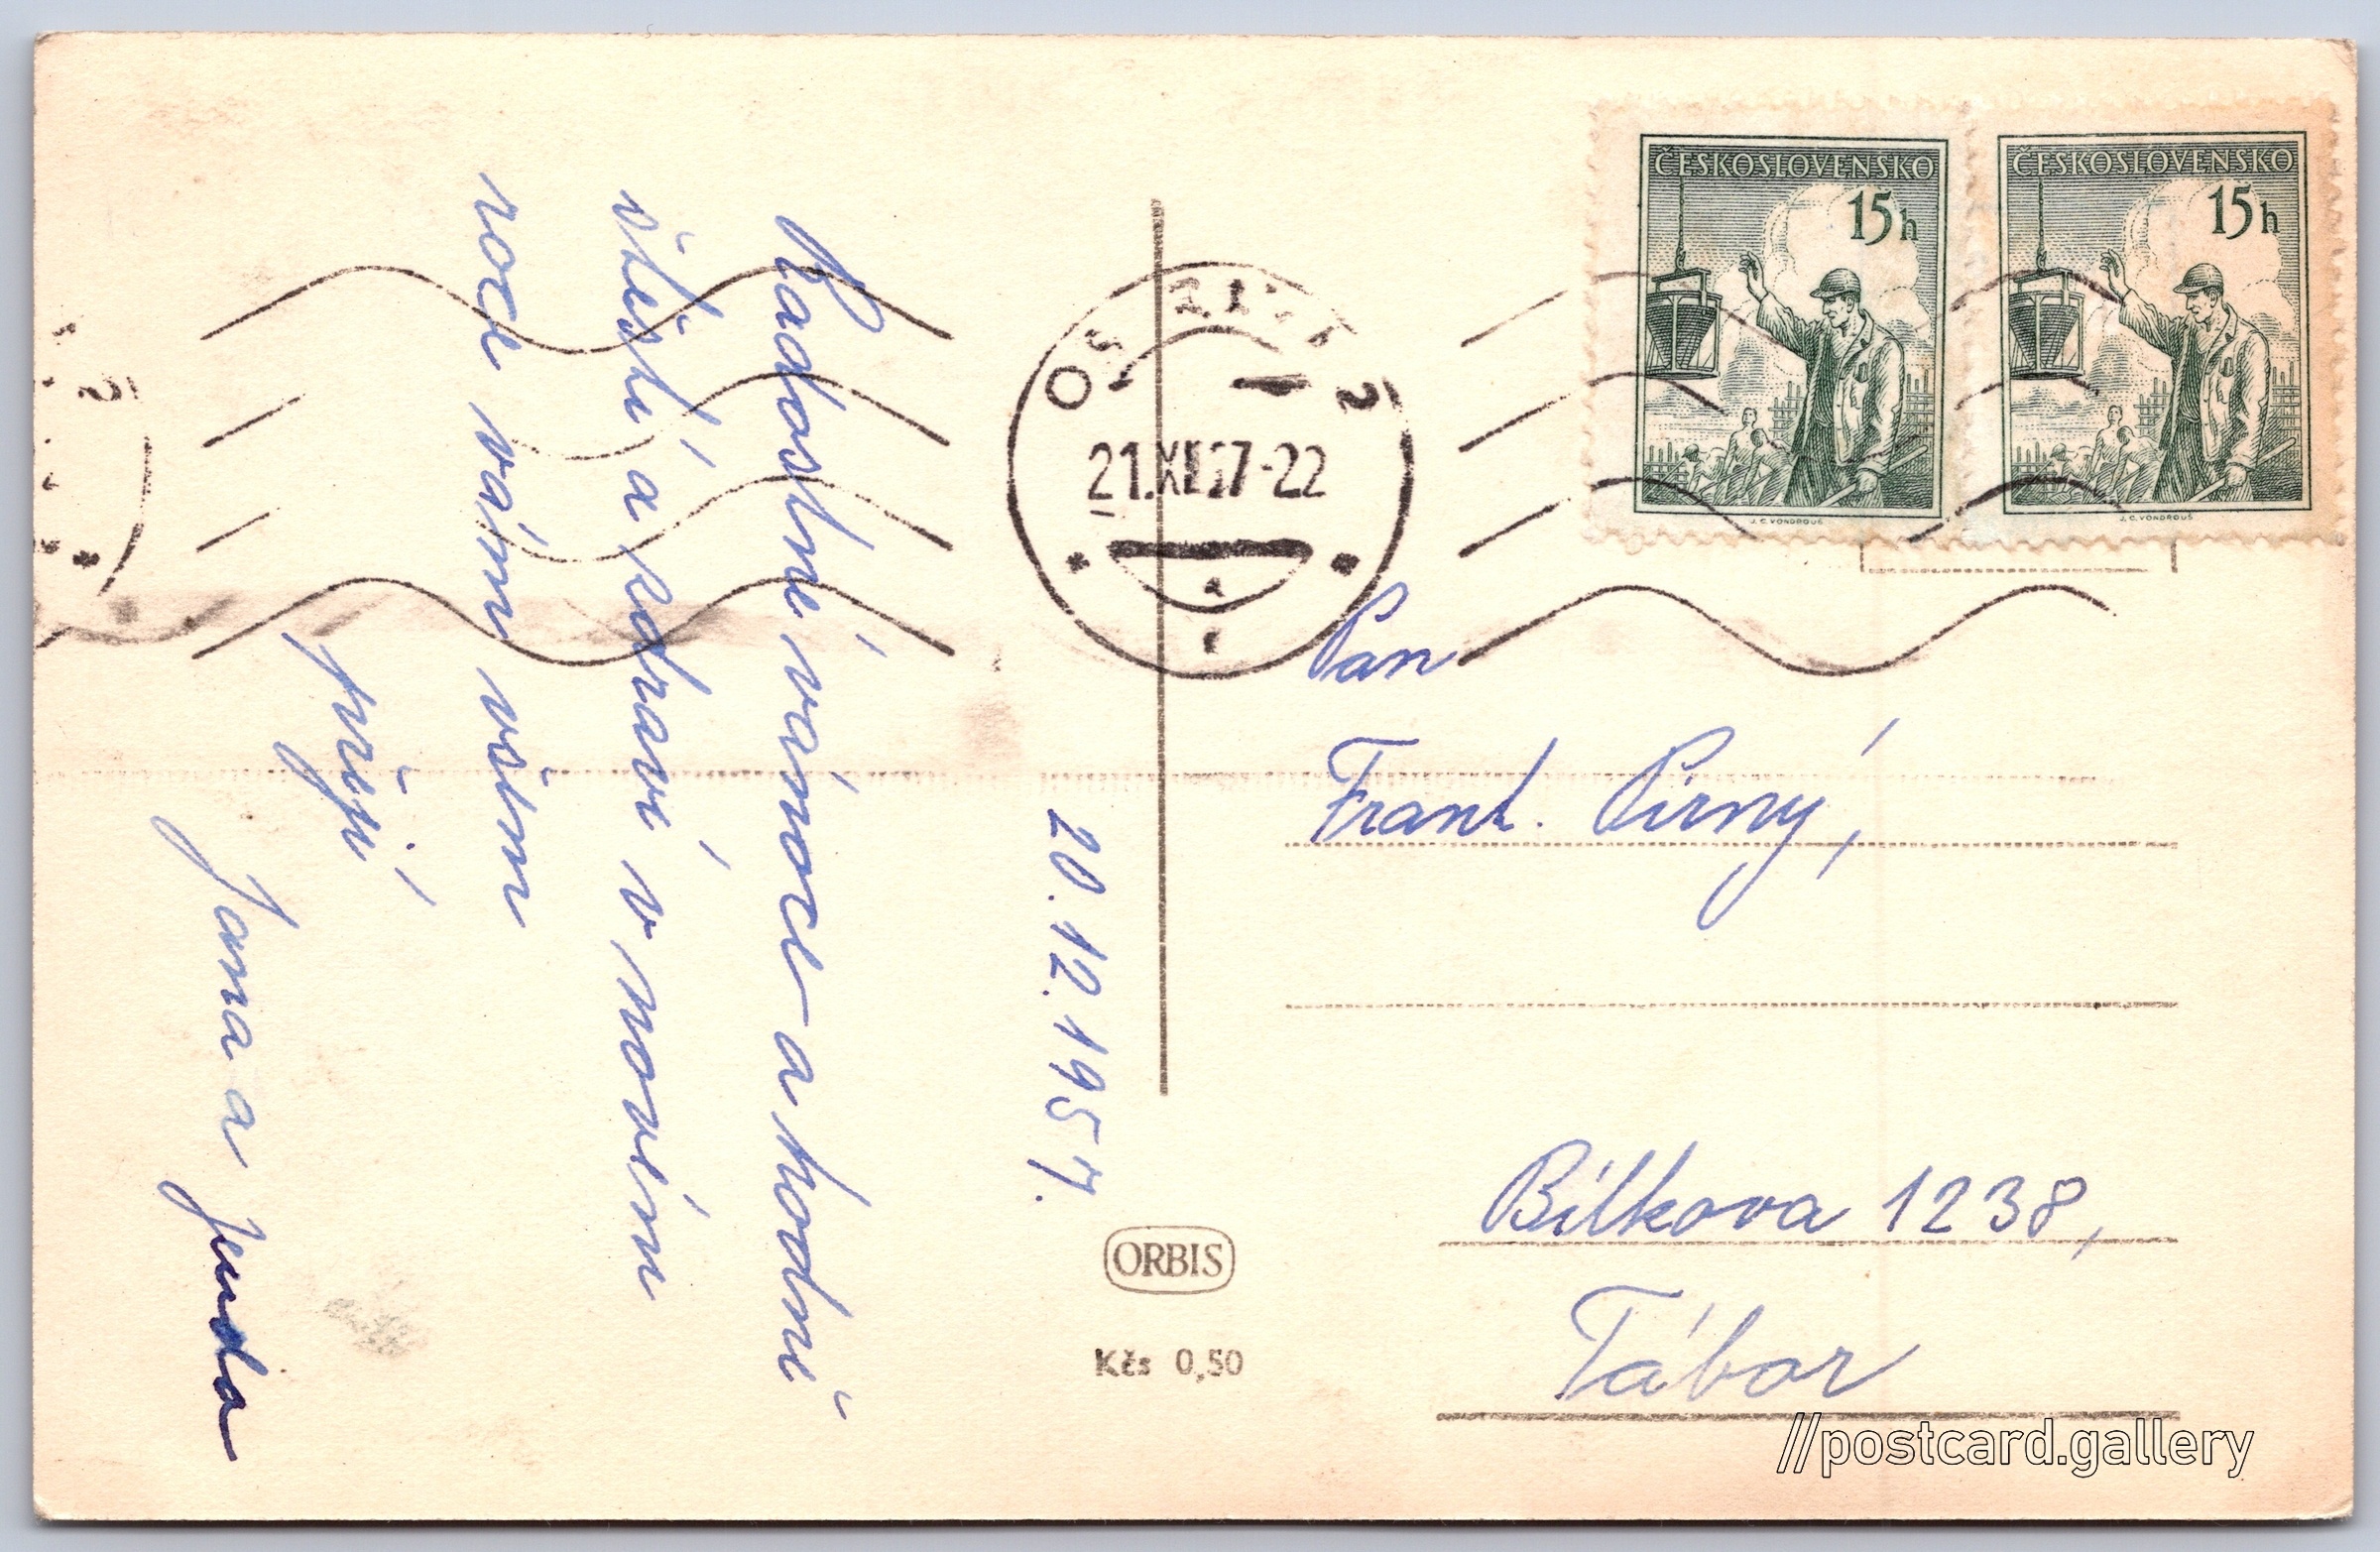 20.12.1957.
Radostné vánoce a hodně
štěstí a zdraví v novém
roce vám všem
přejí
Jana a Jenda
OSTRAVA 2
21.XII.57-22
ČESKOSLOVENSKO
15h
J.C.VONDROUŠ
ČESKOSLOVENSKO
15h
J.C.VONDROUŠ
Pan
Frant. Pirný,
Bílkova 1238,
Tábor
ORBIS
Kčs 0,50
//postcard.gallery